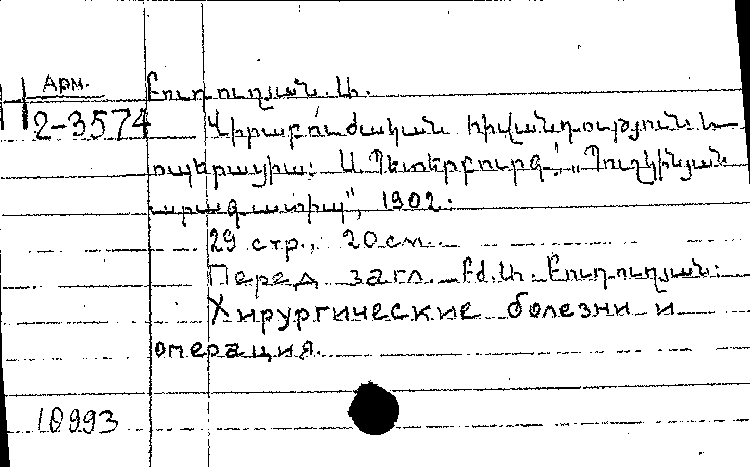 Арм.
2-3574
Բուդուղյան Ա.
Վիրաբուժական հիվանդություն և
օպերացիա: Ս. Պետերբուրգ, „Պուշկինյան
արագատիպ", 1902:
29 стр., 20 см.
Перед загл. Բժ. Ա. Բուդուղյան:
Хирургические болезни и
операция.
10993